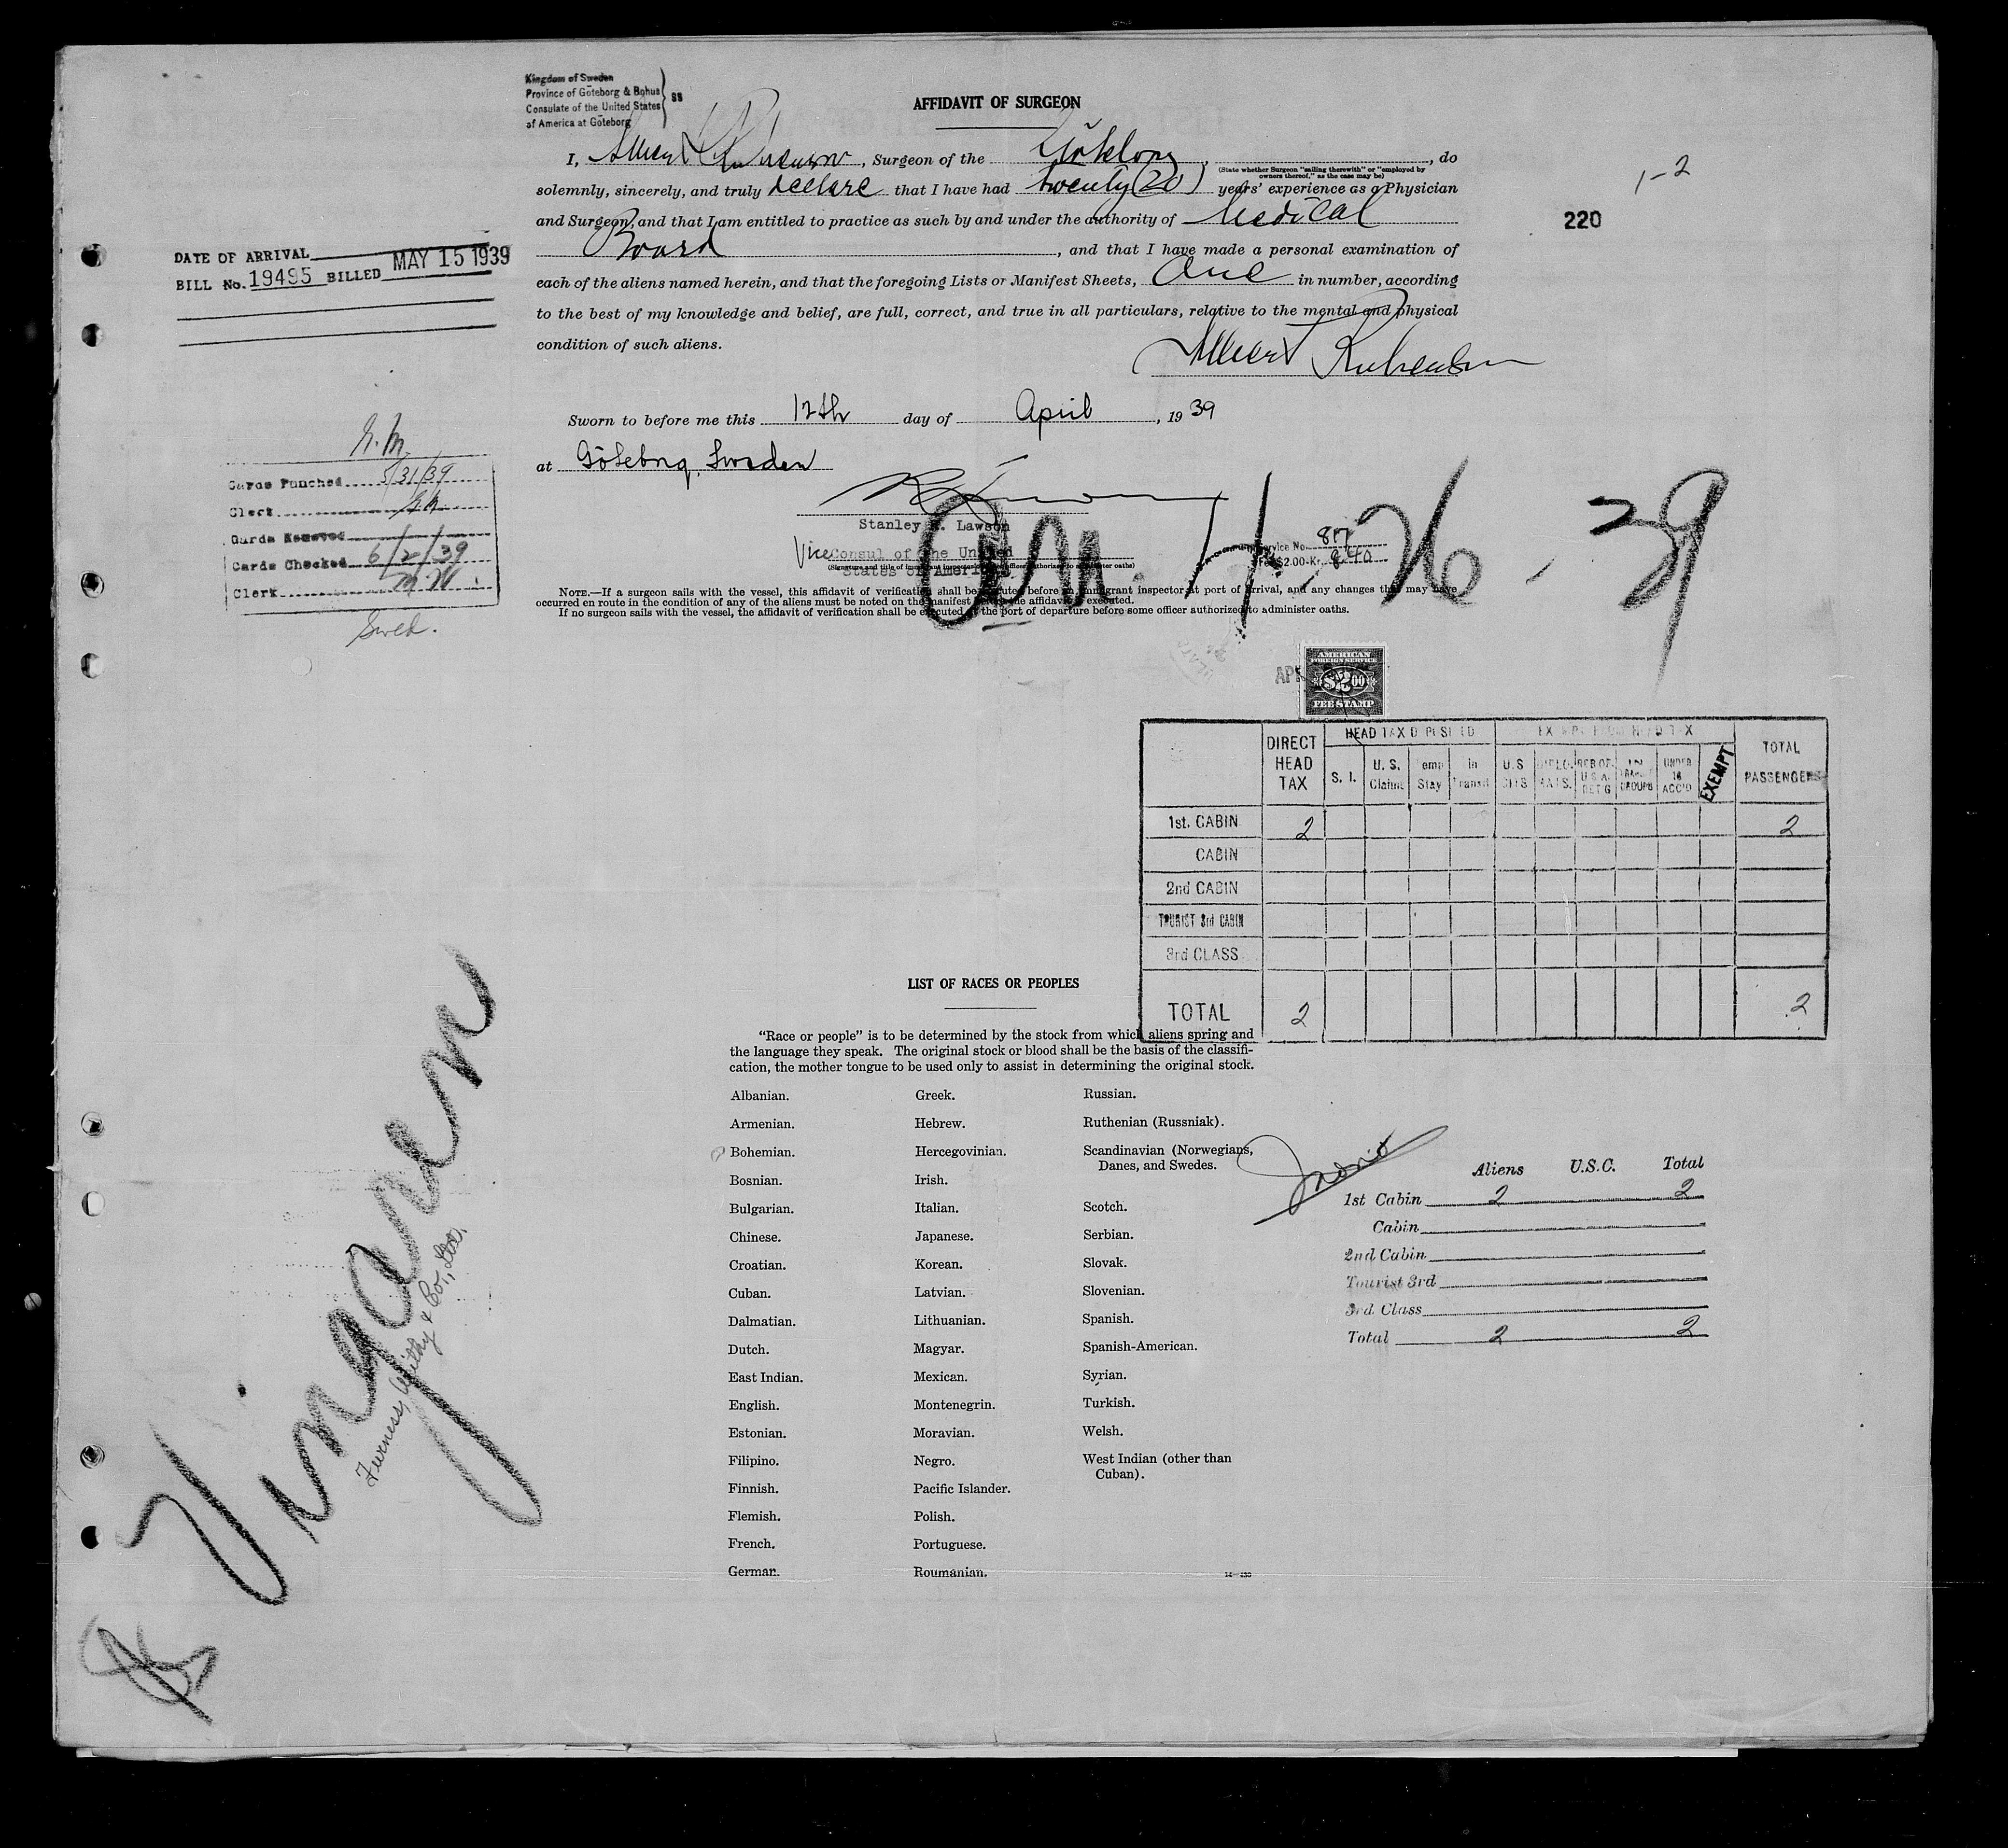 Kingdom of Sweden
Province of Göteborg & Bohus
Consulate of the United States
of America at Göteborg
SS
AFFIDAVIT OF SURGEON
I, Albert, Surgeon of the , do
(State whether Surgeon "sailing therewith" or "employed by owners thereof," as the case may be)
solemnly, sincerely, and truly declare that I have had twenty (20) years' experience as a Physician
and Surgeon, and that I am entitled to practice as such by and under the authority of Medical
Board, and that I have made a personal examination of
each of the aliens named herein, and that the foregoing Lists or Manifest Sheets, One in number, according
to the best of my knowledge and belief, are full, correct, and true in all particulars, relative to the mental and physical
condition of such aliens.
Albert Rubenson
1-2
220
DATE OF ARRIVAL
BILL No. 19495 BILLED MAY 15 1939
Sworn to before me this 12th day of April, 1939
at Göteborg, Sweden
Cards Punched 5/31/39
Clerk
Cards Checked 6/2/39
Clerk M.W.
Swed.
Stanley R. Lawson
Vice Consul of the United
States of America
Service No. 817
Fee $2.00-Kr. 8.40
Am. 4-26-39
NOTE.—If a surgeon sails with the vessel, this affidavit of verification shall be executed before an immigrant inspector at port of arrival, and any changes that may have
occurred en route in the condition of any of the aliens must be noted on the manifest before the affidavit is executed.
If no surgeon sails with the vessel, the affidavit of verification shall be executed at the port of departure before some officer authorized to administer oaths.
APR
AMERICAN
FOREIGN SERVICE
$2.00
FEE STAMP
DIRECT HEAD TAX
HEAD TAX DEPOSITED
EXEMPT FROM HEAD TAX
TOTAL PASSENGERS
S. I. U. S. Claims Temp Stay In Transit U.S. CITS DIPLOMATS. UNDER 16 ACC'D EXEMPT
1st. CABIN 2 2
CABIN
2nd CABIN
TOURIST 3rd CABIN
3rd CLASS
TOTAL 2 2
LIST OF RACES OR PEOPLES
"Race or people" is to be determined by the stock from which aliens spring and
the language they speak. The original stock or blood shall be the basis of the classifi-
cation, the mother tongue to be used only to assist in determining the original stock.
Albanian.
Armenian.
Bohemian.
Bosnian.
Bulgarian.
Chinese.
Croatian.
Cuban.
Dalmatian.
Dutch.
East Indian.
English.
Estonian.
Filipino.
Finnish.
Flemish.
French.
German.
Greek.
Hebrew.
Hercegovinian.
Irish.
Italian.
Japanese.
Korean.
Latvian.
Lithuanian.
Magyar.
Mexican.
Montenegrin.
Moravian.
Negro.
Pacific Islander.
Polish.
Portuguese.
Roumanian.
Russian.
Ruthenian (Russniak).
Scandinavian (Norwegians,
Danes, and Swedes.
Scotch.
Serbian.
Slovak.
Slovenian.
Spanish.
Spanish-American.
Syrian.
Turkish.
Welsh.
West Indian (other than
Cuban).
Aliens U.S.C. Total
1st Cabin 2 2
Cabin
2nd Cabin
Tourist 3rd
3rd Class
Total 2 2
Vingaren
Furness, Withy & Co., Ltd.